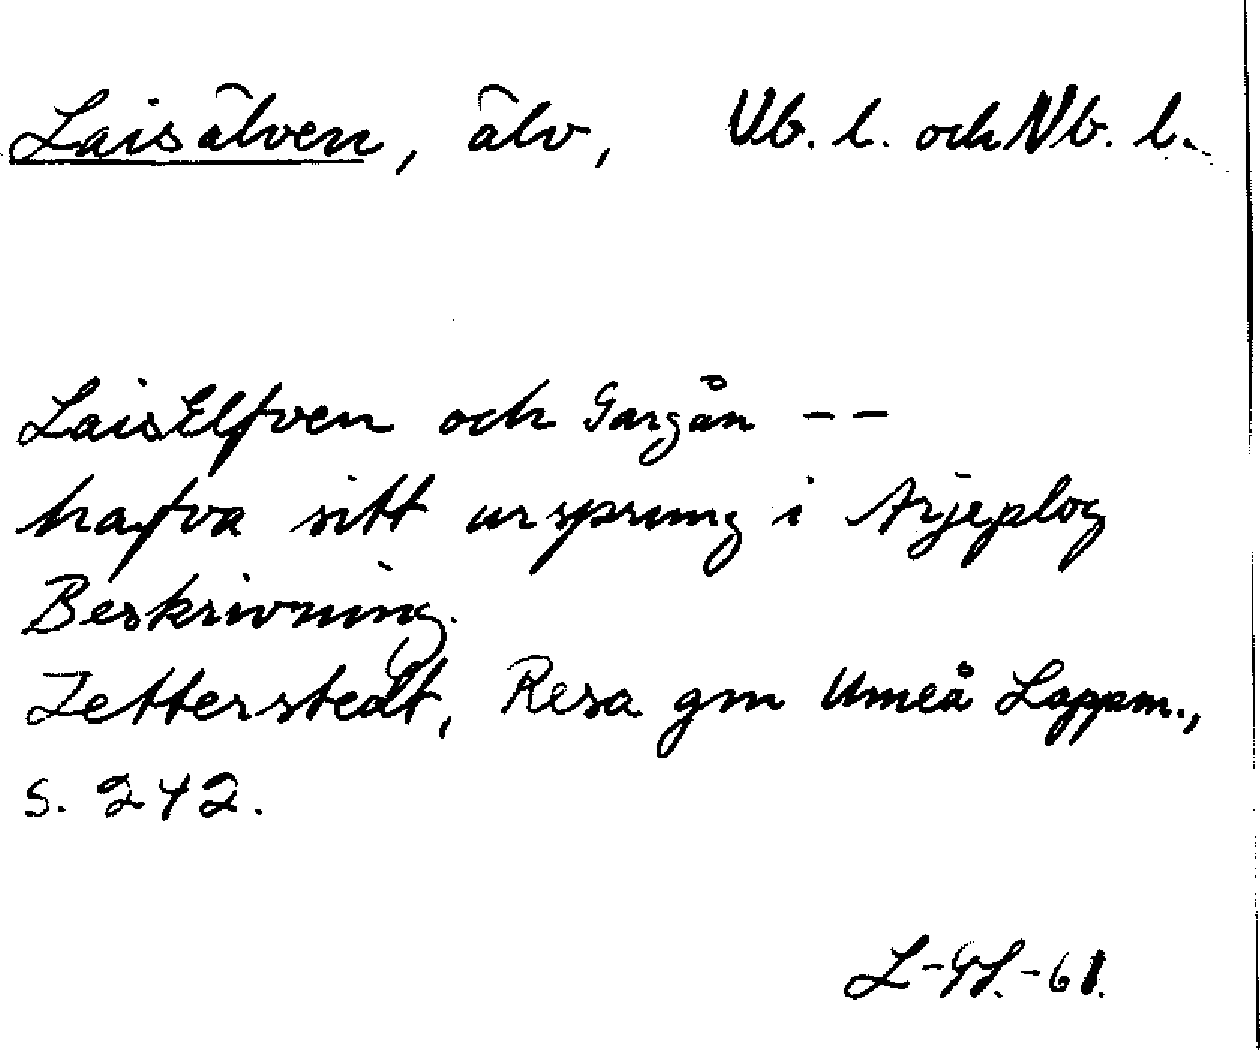 Laisälven, älv, Vb. l. och Nb. l.
LaisElfven och Gargån --
hafva sitt ursprung i Arjeplog
Beskrivning.
Zetterstedt, Resa gm Umeå Lappm.,
s. 242.